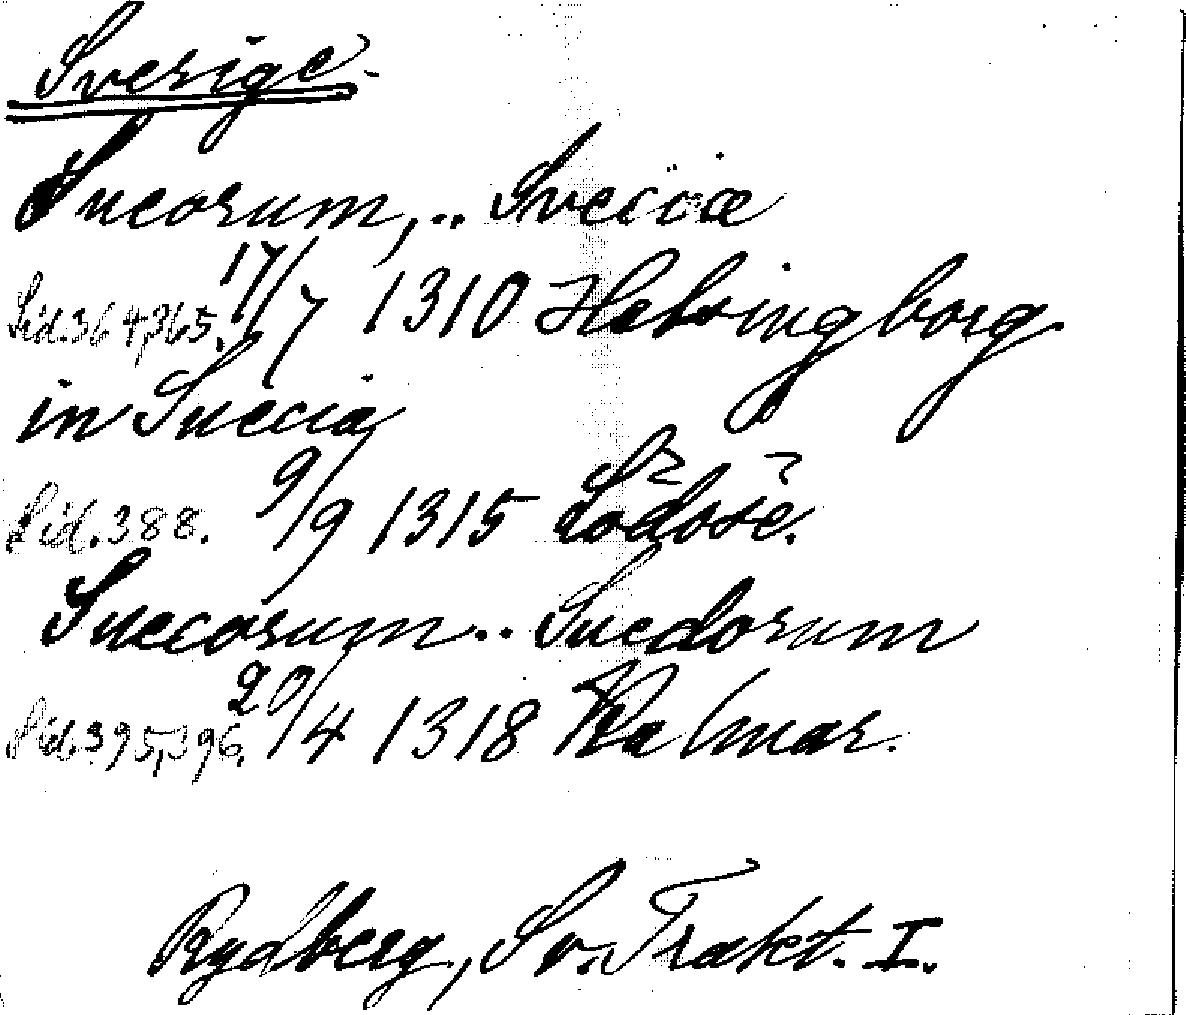 Sverige.
Sueorum, .. Sveciæ
Sid. 364, 365. 17/7 1310 Helsingborg
in Suecia
Sid. 388. 9/9 1315 Lödöse.
Suecorum .. Suedorum
Sid. 395, 396. 20/4 1318 Kalmar.
Rydberg, Sv. Trakt. I.